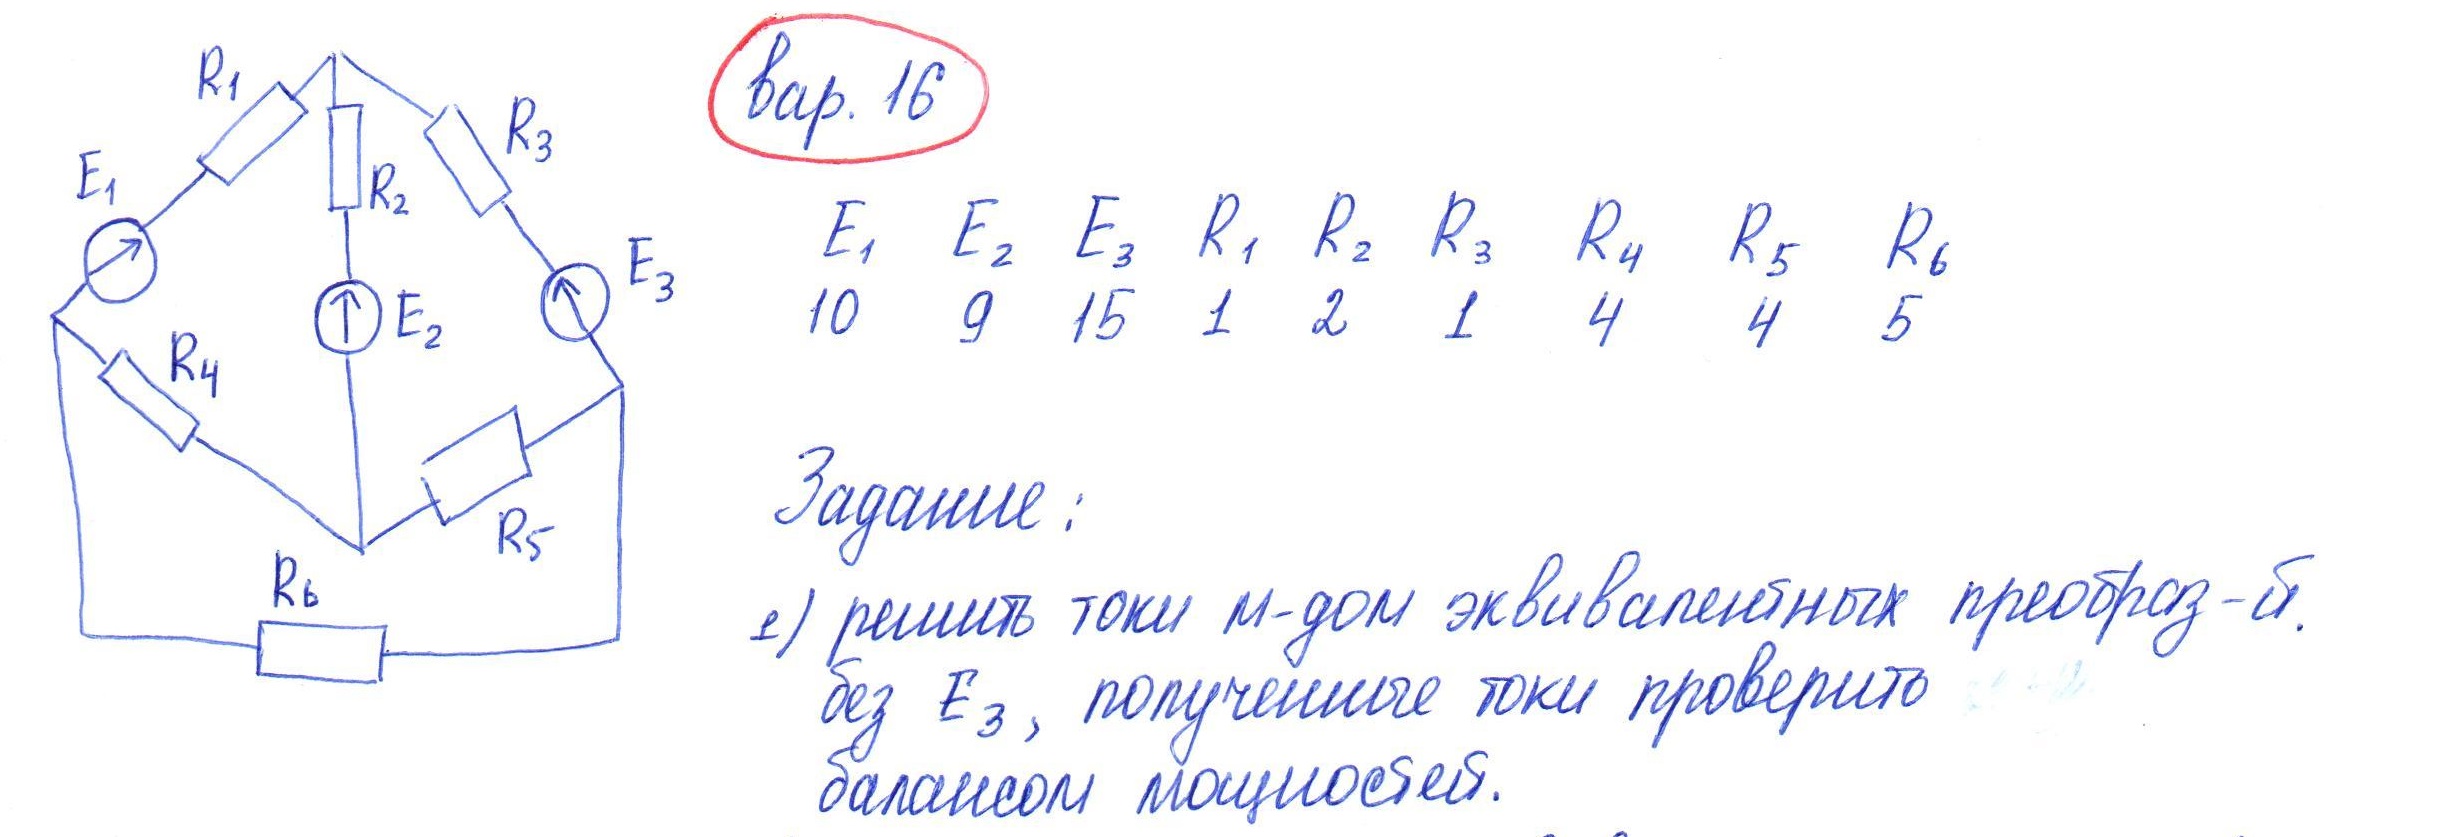 R1
R2
R3
E1
E2
E3
R4
R5
R6
вар. 16
E1 E2 E3 R1 R2 R3 R4 R5 R6
10 9 15 1 2 1 4 4 5
Задание:
1) решить токи м-дом эквивалентных преобраз-й.
без E3, полученные токи проверить
балансом мощностей.